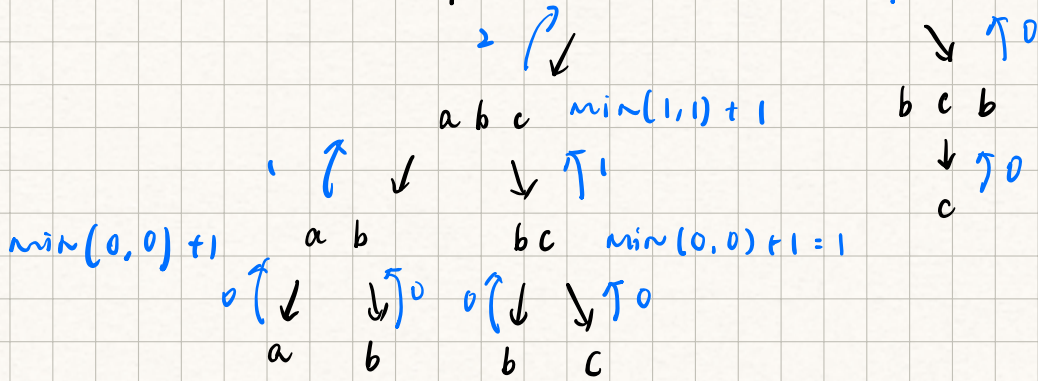 2 0
a b c min(1,1) + 1 b c b
1 1 0
c
min(0,0) + 1 a b b c min(0,0) + 1 = 1
0 0 0 0
a b b c